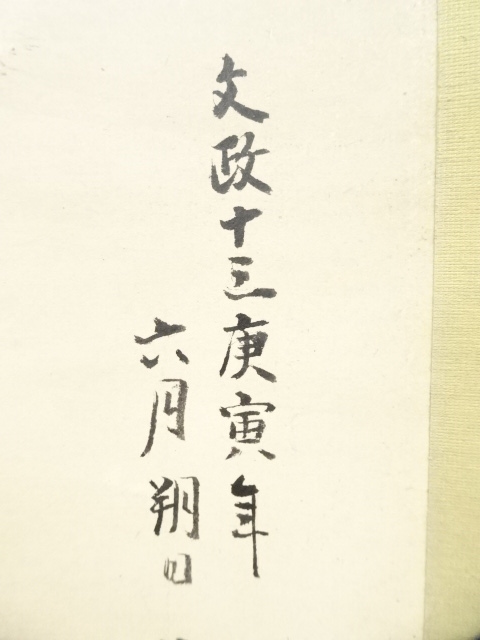 文政十三庚寅年
六月朔日